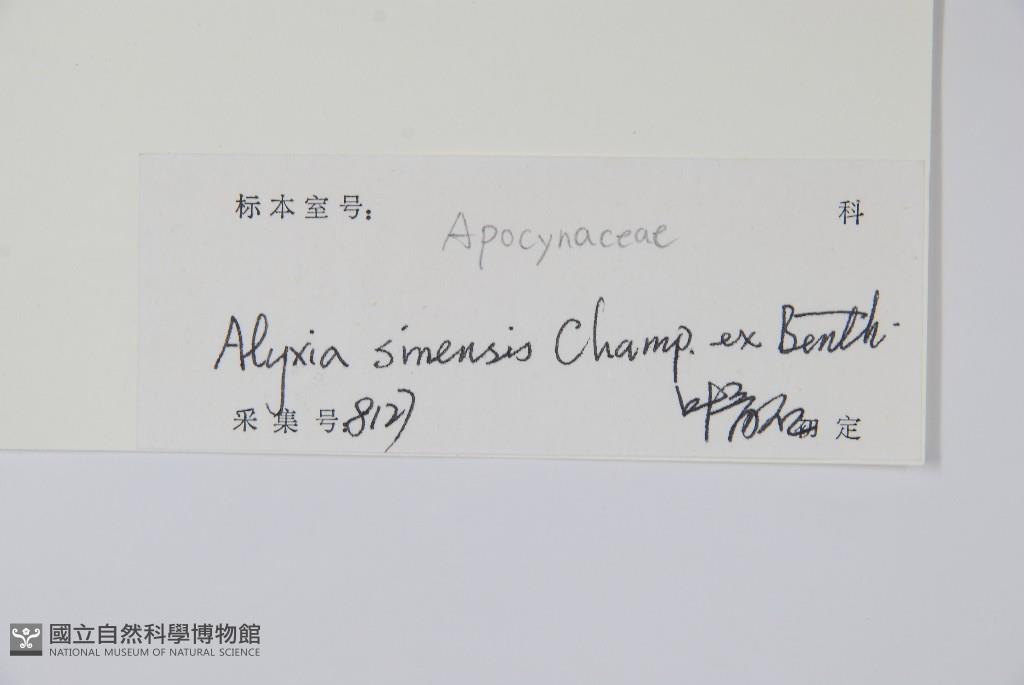 标本室号：
科
Apocynaceae
Alyxia sinensis Champ. ex Benth.
采集号 8127
叶育石 定
國立自然科學博物館
NATIONAL MUSEUM OF NATURAL SCIENCE